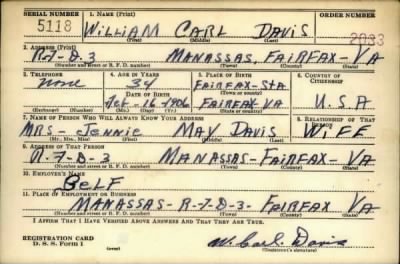 SERIAL NUMBER 1. NAME (Print) ORDER NUMBER
5118 WILLIAM CARL DAVIS 2033
(First) (Middle) (Last)
2. ADDRESS (Print)
R-7-D-3 MANASSAS, FAIRFAX-VA
(Number and street or R. F. D. number) (Town) (County) (State)
3. TELEPHONE 4. AGE IN YEARS 5. PLACE OF BIRTH 6. COUNTRY OF CITIZENSHIP
none 34 FAIRFAX-STA
DATE OF BIRTH (Town or county)
16-1906 FAIRFAX VA U.S.A
(Exchange) (Number) (Mo.) (Day) (Yr.) (State or country)
7. NAME OF PERSON WHO WILL ALWAYS KNOW YOUR ADDRESS 8. RELATIONSHIP OF THAT PERSON
MRS- JENNIE MAY DAVIS WIFE
(Mr., Mrs., Miss) (First) (Middle) (Last)
9. ADDRESS OF THAT PERSON
R-7-D-3 MANASSAS-FAIRFAX-VA
(Number and street or R. F. D. number) (Town) (County) (State)
10. EMPLOYER'S NAME
SELF
11. PLACE OF EMPLOYMENT OR BUSINESS
MANASSAS-R-7-D-3- FAIRFAX VA
(Number and street or R. F. D. number) (Town) (County) (State)
I AFFIRM THAT I HAVE VERIFIED ABOVE ANSWERS AND THAT THEY ARE TRUE.
REGISTRATION CARD
D. S. S. Form 1 (over) W. Carl. Davis
(Registrant's signature)